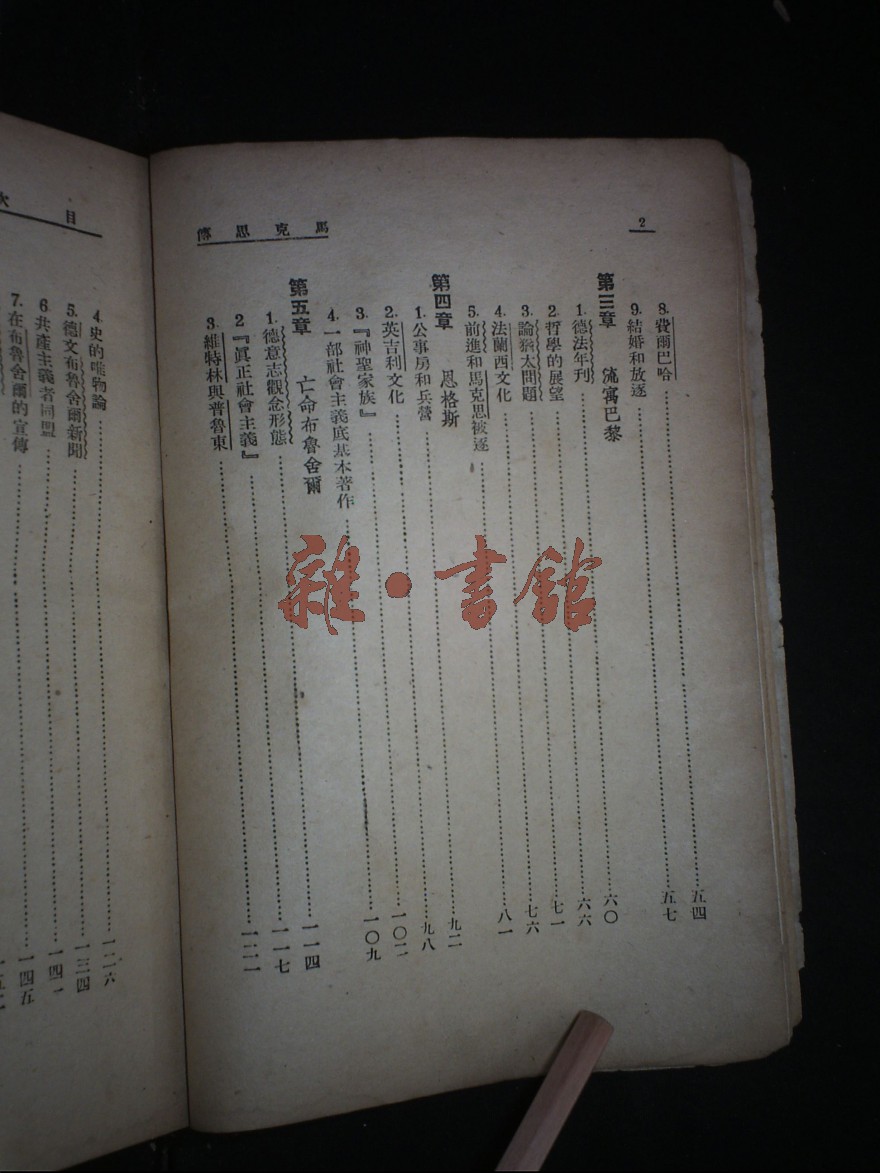 馬克思傳
2
8. 費爾巴哈……五四
9. 結婚和放逐……五七
第三章 流寓巴黎
1. 德法年刊……六〇
2. 哲學的展望……六六
3. 論猶太問題……七一
4. 法蘭西文化……七六
5. 前進和馬克思被逐……八一
第四章 恩格斯
1. 公事房和兵營……九二
2. 英吉利文化……九八
3. 『神聖家族』……一〇二
4. 一部社會主義底基本著作……一〇九
第五章 亡命布魯舍爾
1. 德意志觀念形態……一一四
2 『眞正社會主義』……一一七
3. 維特林與普魯東……一二一
目次
4. 史的唯物論……一二六
5. 德文布魯舍爾新聞……一三四
6. 共產主義者同盟……一四一
7. 在布魯舍爾的宣傳……一四五
雜·書館